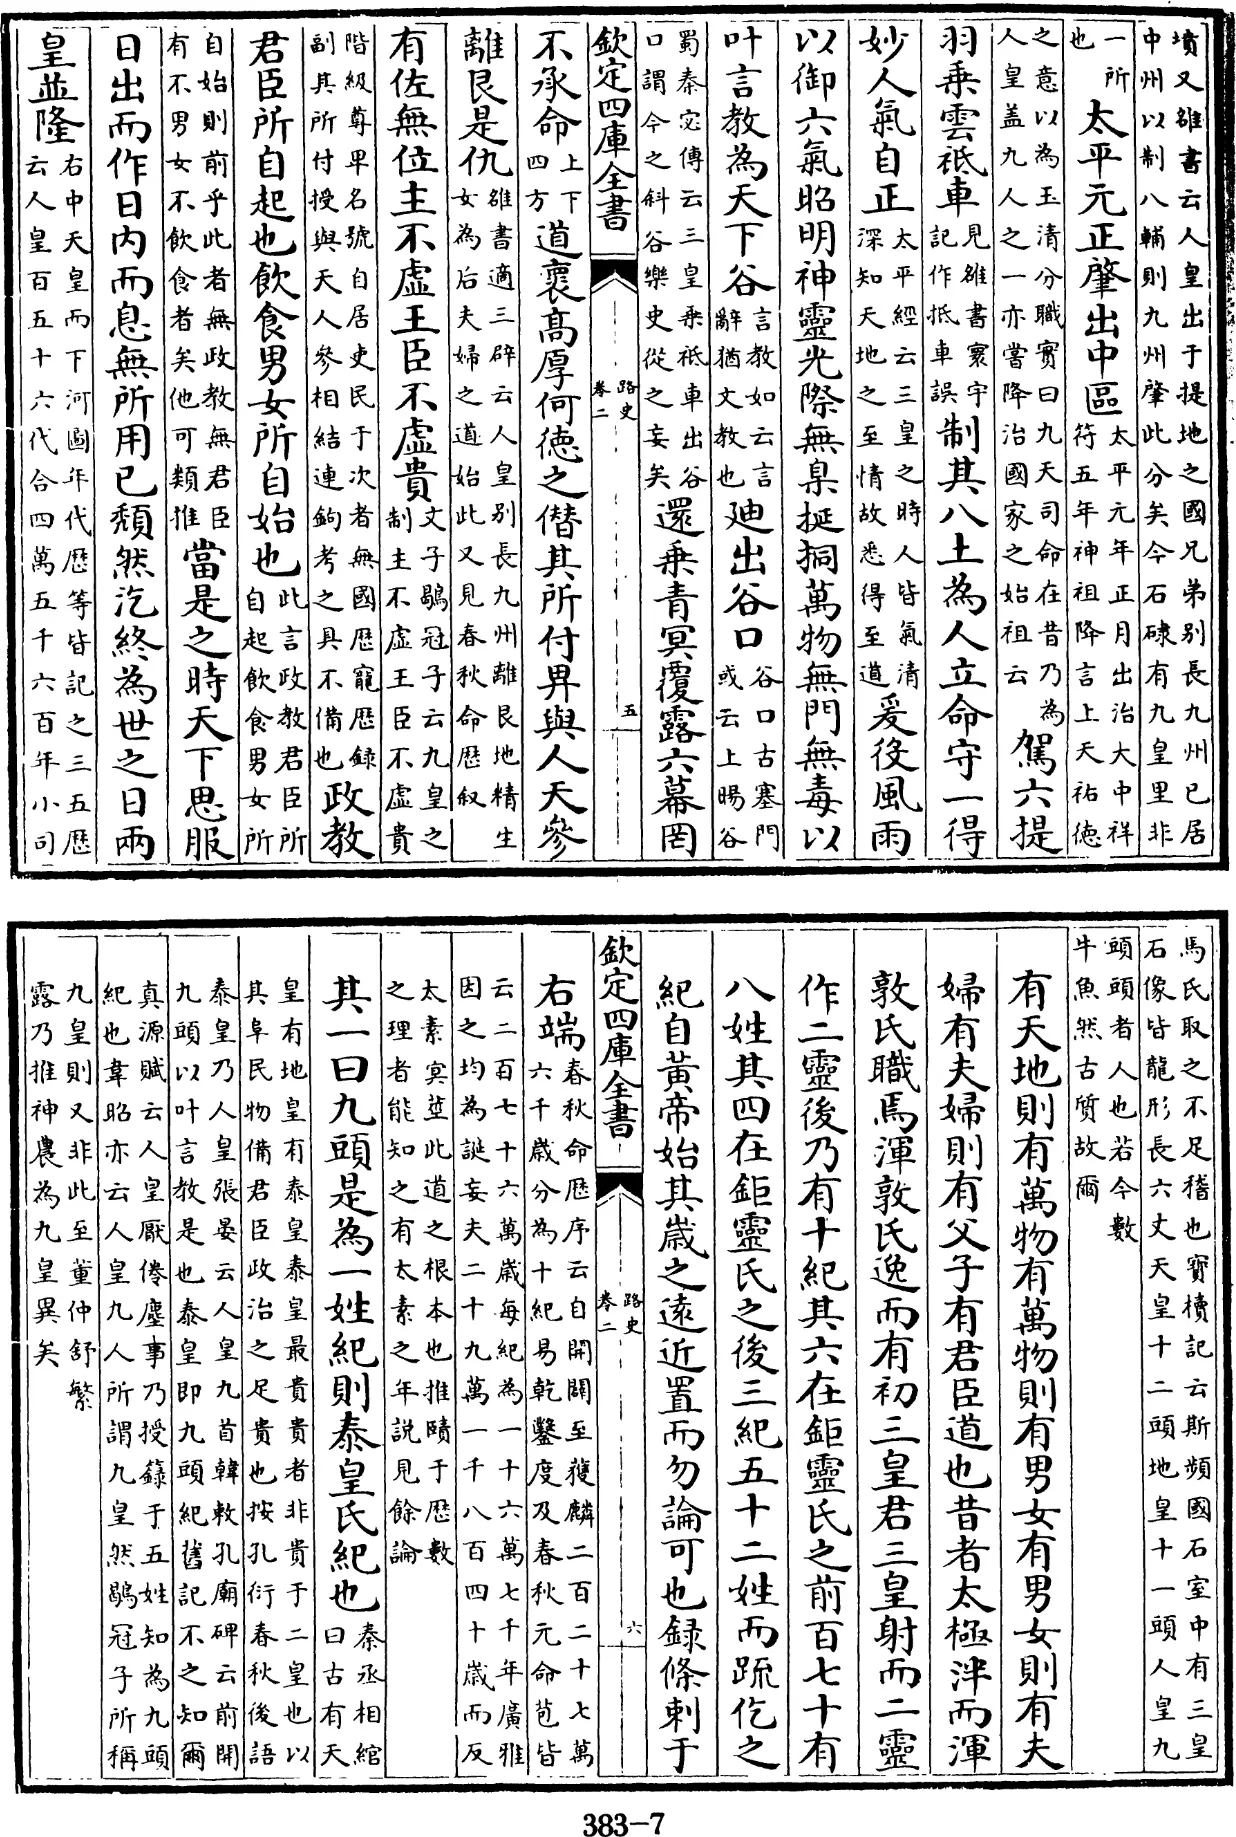 墳又雒書云人皇出于提地之國兄弟别長九州已居
中州以制八輔則九州肇此分矣今石碌有九皇里非
一所也太平元正肇出中區太平元年正月出治大中祥
符五年神祖降言上天祐德
之意以為玉清分職實曰九天司命在昔乃為
人皇盖九人之一亦嘗降治國家之始祖云駕六提
羽乗雲祗車見雒書寰宇
記作抵車誤制其八土為人立命守一得
妙人氣自正太平經云三皇之時人皆氣清
深知天地之至情故悉得至道爰役風雨
以御六氣昭明神靈光際無臬挻挏萬物無門無毒以
叶言教為天下谷言教如云言
辭猶文教也廸出谷口谷口古塞門
或云上暘谷
蜀秦宓傳云三皇乗祗車出谷
口謂今之斜谷樂史從之妄矣還乗青冥覆露六幕罔
欽定四庫全書 路史 卷二 五
不承命上下
四方道褱髙厚何德之僣其所付畀與人天參
離艮是仇雒書適三辟云人皇别長九州離艮地精生
女為后夫婦之道始此又見春秋命歴叙
有佐無位主不虚王臣不虚貴文子鶡冠子云九皇之
制主不虚王臣不虚貴
階級尊畀名號自居吏民于次者無國歴寵歴録
副其所付授與天人參相結連鉤考之具不備也政教
君臣所自起也飲食男女所自始也此言政教君臣所
自起飲食男女所
自始則前乎此者無政教無君臣
有不男女不飲食者矣他可類推當是之時天下思服
日出而作日内而息無所用已頽然汔終為世之日兩
皇並隆右中天皇而下河圖年代歴等皆記之三五歴
云人皇百五十六代合四萬五千六百年小司
馬氏取之不足稽也寳櫝記云斯頻國石室中有三皇
石像皆龍形長六丈天皇十二頭地皇十一頭人皇九
頭頭者人也若今數
牛魚然古質故爾
有天地則有萬物有萬物則有男女有男女則有夫
婦有夫婦則有父子有君臣道也昔者太極泮而渾
敦氏職焉渾敦氏逸而有初三皇君三皇射而二靈
作二靈後乃有十紀其六在鉅靈氏之前百七十有
八姓其四在鉅靈氏之後三紀五十二姓而疏仡之
紀自黄帝始其歳之逺近置而勿論可也録條剌于
欽定四庫全書 路史 卷二 六
右端春秋命歴序云自開闢至獲麟二百二十七萬
六千歳分為十紀易乾鑿度及春秋元命苞皆
云二百七十六萬歳每紀為一十六萬七千年廣雅
因之均為誕妄夫二十九萬一千八百四十歳而反
太素冥莖此道之根本也推賾于歴數
之理者能知之有太素之年説見餘論
其一曰九頭是為一姓紀則泰皇氏紀也秦丞相綰
曰古有天
皇有地皇有泰皇泰皇最貴貴者非貴于二皇也以
其阜民物備君臣政治之足貴也按孔衍春秋後語
泰皇乃人皇張晏云人皇九首韓敕孔廟碑云前開
九頭以叶言教是也泰皇即九頭紀舊記不之知爾
真源賦云人皇厭倦塵事乃授籙于五姓知為九頭
紀也韋昭亦云人皇九人所謂九皇然鶡冠子所稱
九皇則又非此至董仲舒繁
露乃推神農為九皇異矣
383-7